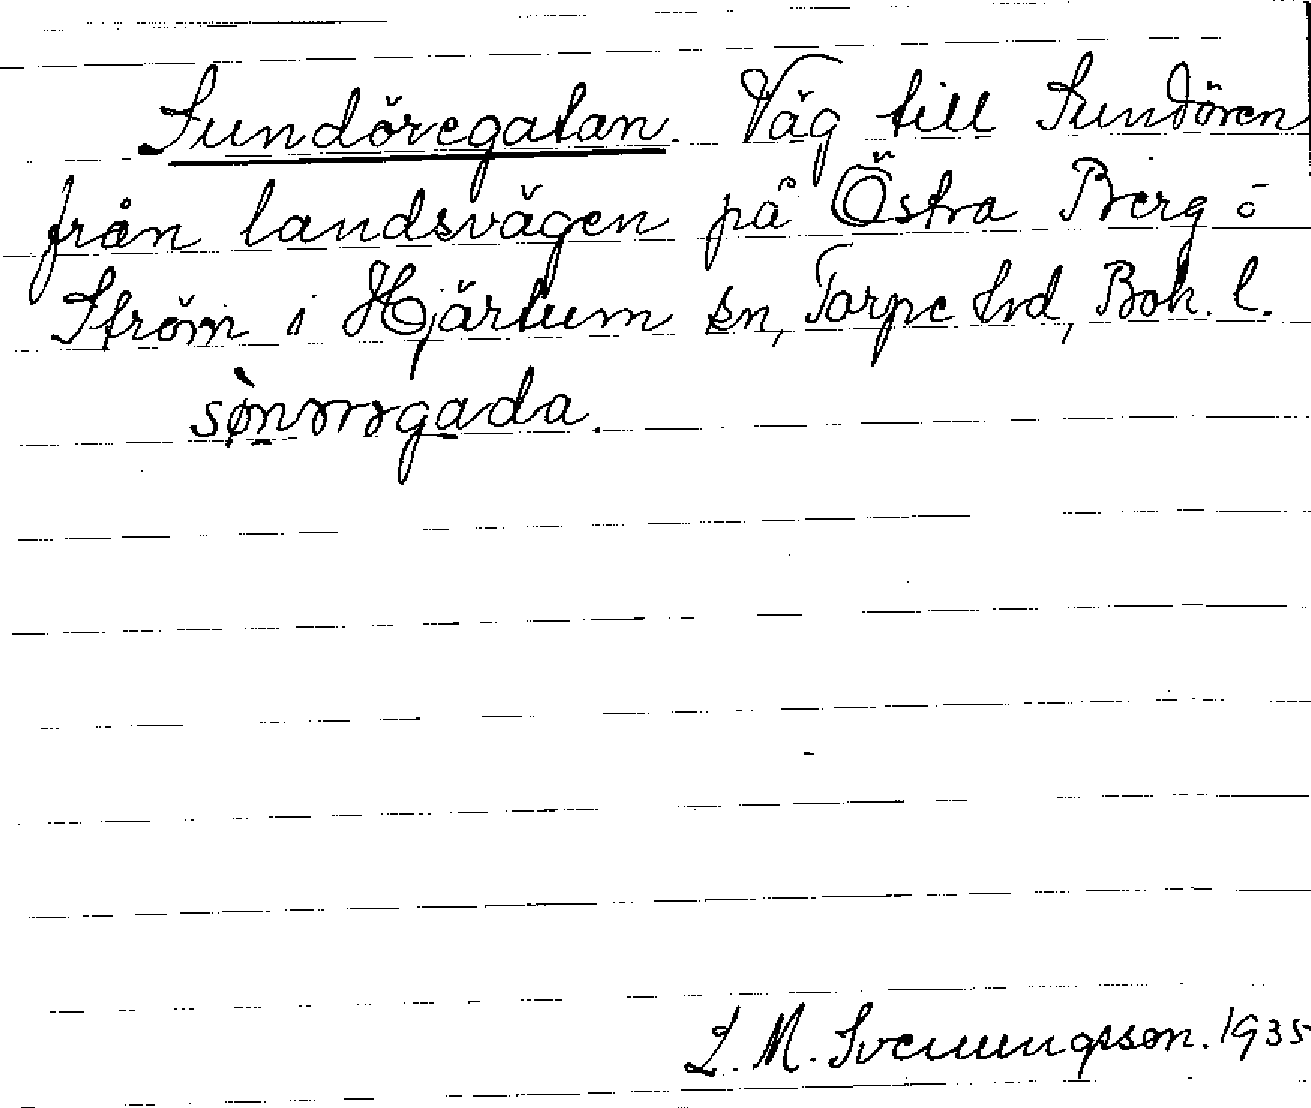 Sundöregatan. Väg till Sundören
från landsvägen på Östra Berg o
Ström i Hjärtum sn, Torpe hd, Boh. l.
L. M. Svenungsson. 1935